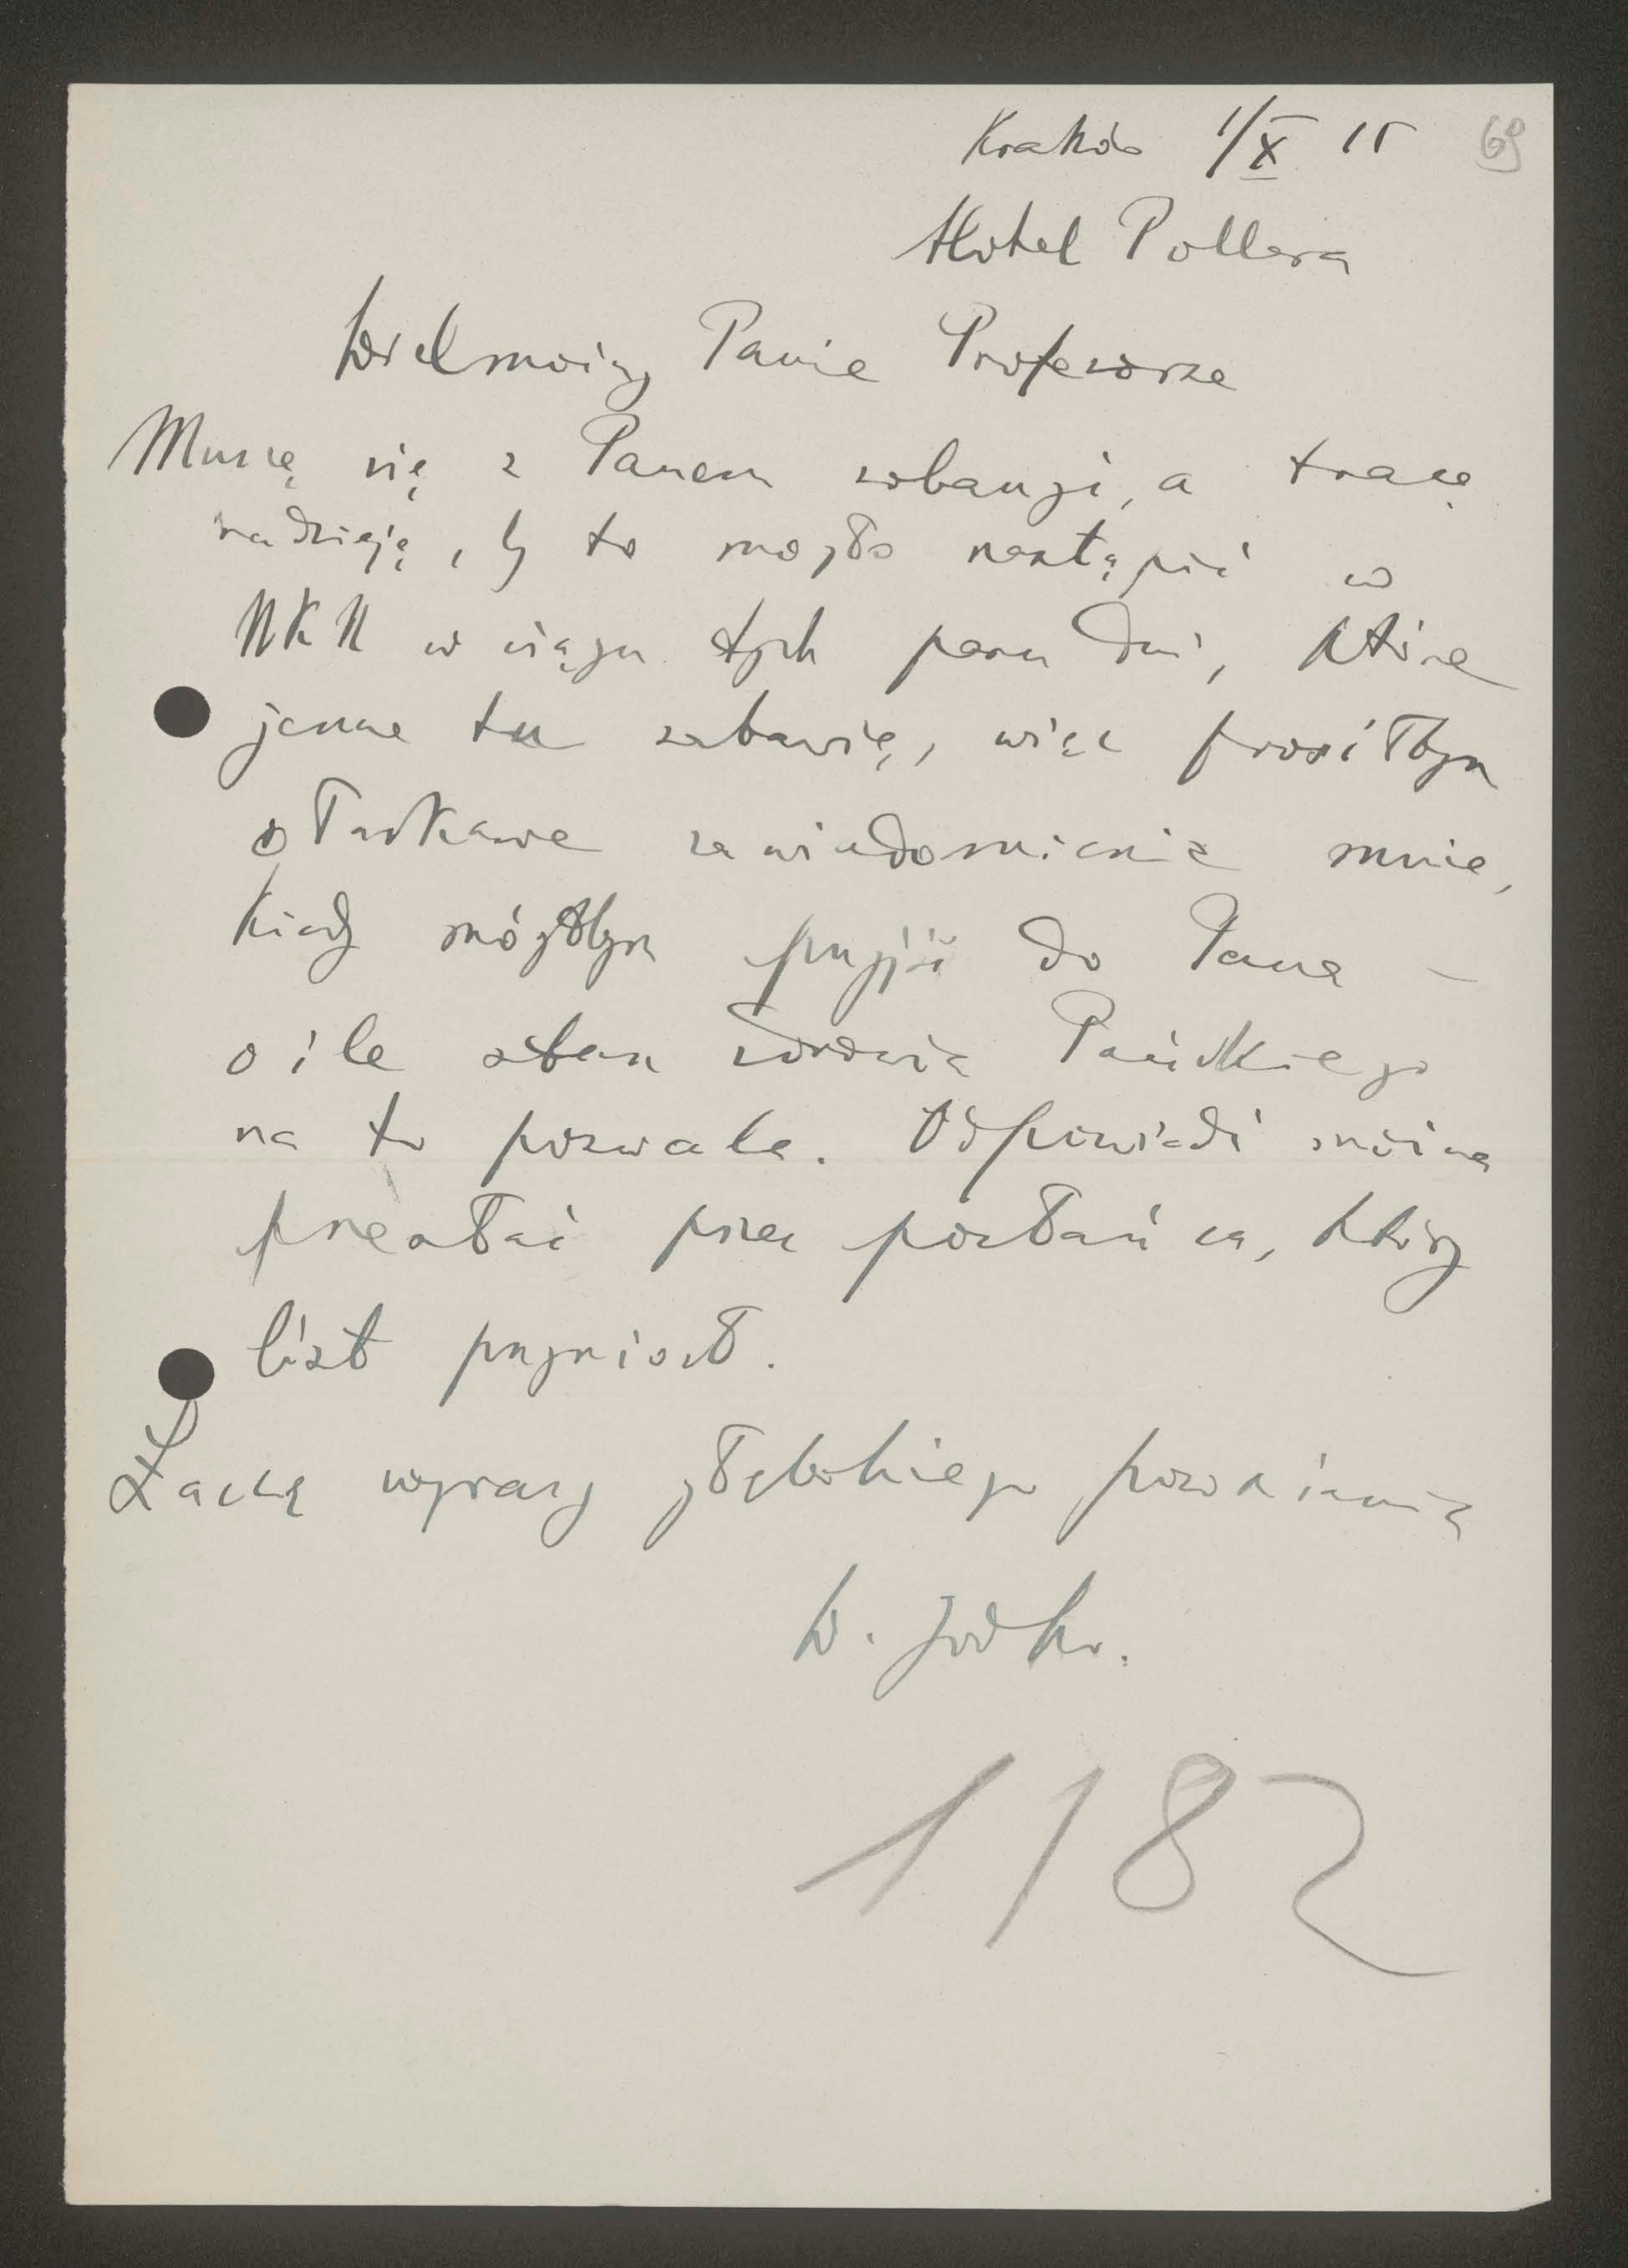 Kraków 1/X 15
69
Hotel Pollera
Wielmożny Panie Profesorze
Muszę się z Panem zobaczyć, a tracę
nadzieję, by to mogło nastąpić w
NKN w ciągu tych paru dni, które
jeszcze tu zabawię, więc prosiłbym
o łaskawe zawiadomienie mnie,
kiedy mógłbym przyjść do Pana –
o ile stan zdrowia Pańskiego
na to pozwala. Odpowiedź można
przesłać przez posłańca, który
list przyniósł.
Łączę wyrazy głębokiego poważania
W. Jodko.
1182